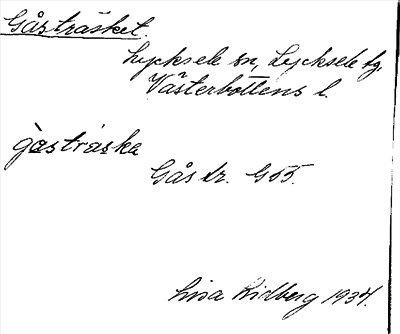 Gåsträsket.
Lycksele sn, Lycksele tg.
Västerbottens l.
gå̀stráska
Gåstr. G55.
Lisa Lidberg 1934.